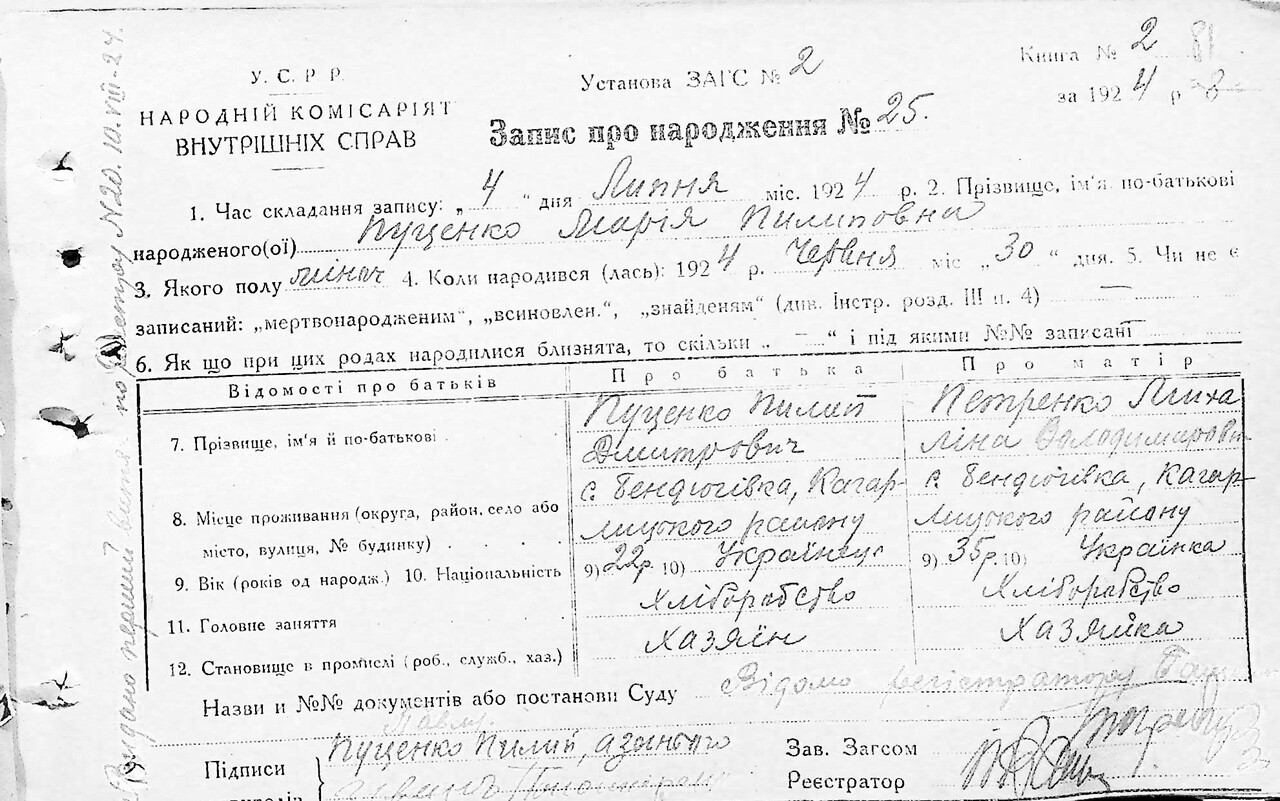 Книга № 2 81
У. С. Р. Р.
Установа ЗАГС № 2
за 1924 р
НАРОДНІЙ КОМІСАРІЯТ
ВНУТРІШНІХ СПРАВ
Запис про народження № 25.
1. Час складання запису: „ 4 “ дня Липня міс. 1924 р. 2. Прізвище, ім'я по-батькові
народженого(ої) Пуценко Марія Пилиповна
3. Якого полу жіноч 4. Коли народився (лась): 1924 р. Червня міс „30 “ дня. 5. Чи не є
записаний: „мертвонародженим“, „всиновлен.“, „знайденям“ (див. Інстр. розд. III п. 4) —
6. Як що при цих родах народилися близнята, то скільки „ — “ і під якими №№ записані
Відомості про батьків
Про батька
Про матір
7. Прізвище, ім'я й по-батькові
Пуценко Пилип
Дмитрович
Петренко Миха
ліна Володимировн
8. Місце проживання (округа, район, село або
місто, вулиця, № будинку)
с. Бендюгівка, Кагар-
лицького району
с. Бендюгівка, Кагар-
лицького району
9. Вік (років од народж.) 10. Національність
9) 22р. 10) Українець
9) 35р. 10) Українка
11. Головне заняття
Хліборобство
Хліборобство
12. Становище в промислі (роб., служб., хаз.)
Хазяїн
Хазяйка
Назви и №№ документів або постанови Суду Відомо регістратору
Підписи
Пуценко Пилип, а за нього
Зав. Загсом
Реєстратор
Видано перший витяг по № 20. 10.VIII-24.